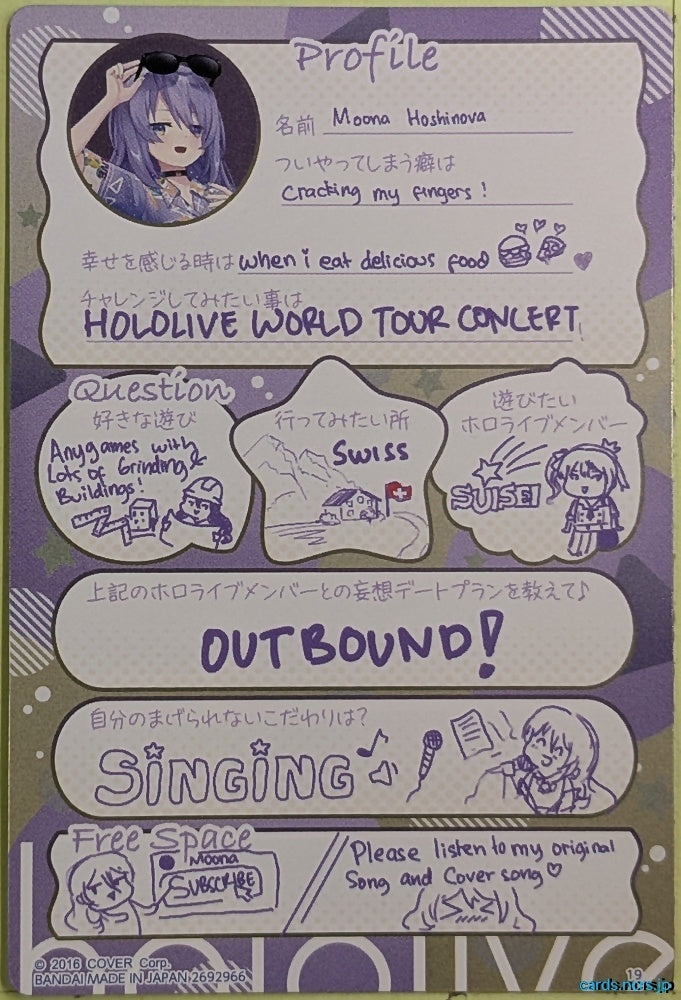 Profile
名前 Moona Hoshinova
ついやってしまう癖は
Cracking my fingers!
幸せを感じる時は when i eat delicious food
チャレンジしてみたい事は
HOLOLIVE WORLD TOUR CONCERT!
Question
好きな遊び
Any games with
Lots of Grinding &
Buildings!
行ってみたい所
Swiss
遊びたい
ホロライブメンバー
SUISEI
上記のホロライブメンバーとの妄想デートプランを教えて♪
OUTBOUND!
自分のまげられないこだわりは?
SiNGiNG
Free Space
Moona
SUBSCRIBE
Please listen to my original
Song and Cover song♡
hololive
© 2016 COVER Corp.
BANDAI MADE IN JAPAN 2692966
19
cards.ncss.jp